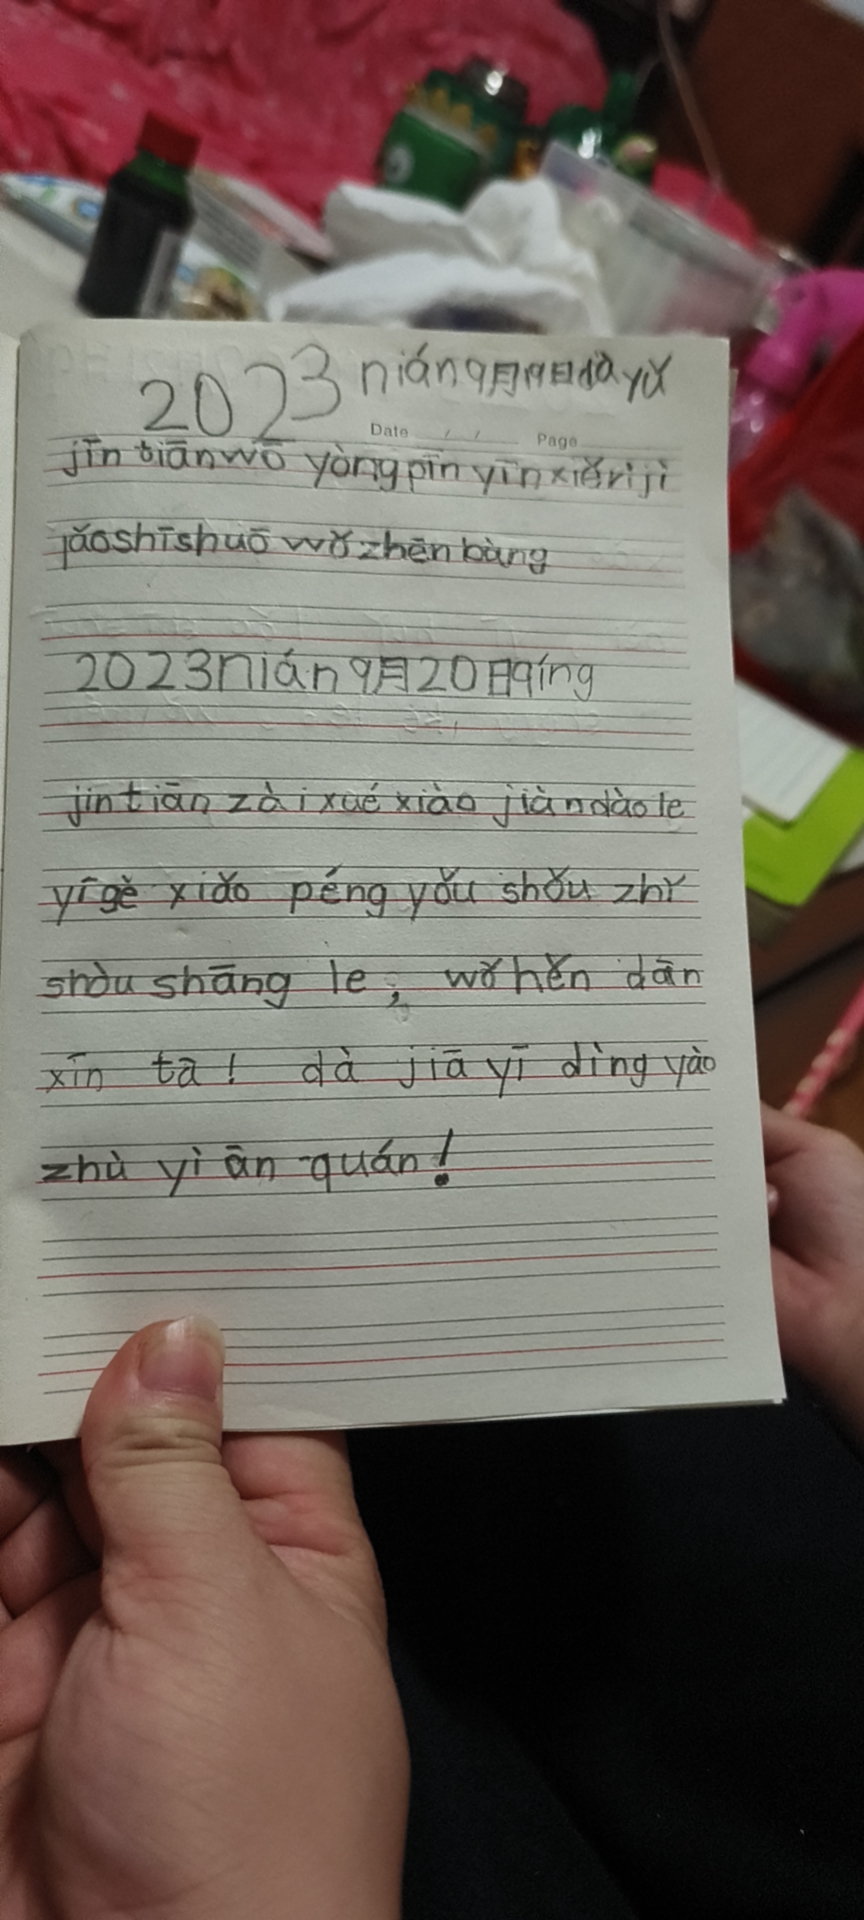 2023 nián9月19日dàyǔ
Date / / Page
jīn tiānwō yòngpīn yīnxiěrìjì
lǎoshīshuō wǒzhēnbàng
2023nián9月20日qíng
jīntiān zàixué xiào jiàndàole
yīgè xiǎo péngyǒu shǒu zhǐ
shòushāng le, wǒhěn dān
xīn tā! dà jiāyī dìngyào
zhù yì ān quán!